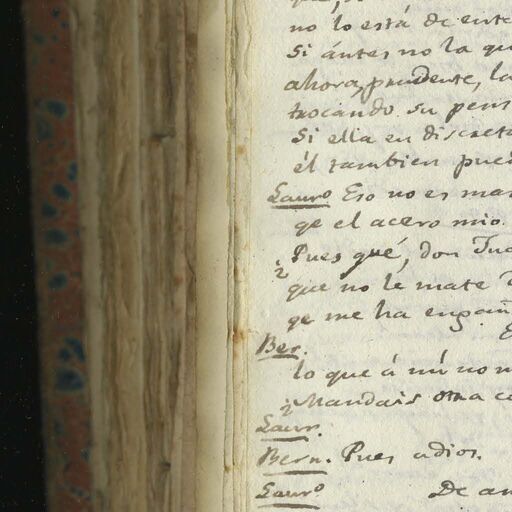 no lo está de ente
Si ántes no la qu
ahora, prudente, la
trocando su pens
Si ella en discreta
él tambien pued
Lauro Eso no es man
qe el acero mio.
¿Pues qué, don Jua
que no le mate
qe me ha engañ
Ber.
lo que á mí no m
¿Mandais otra co
Laur.
Bern. Pues adios.
Lauro De an